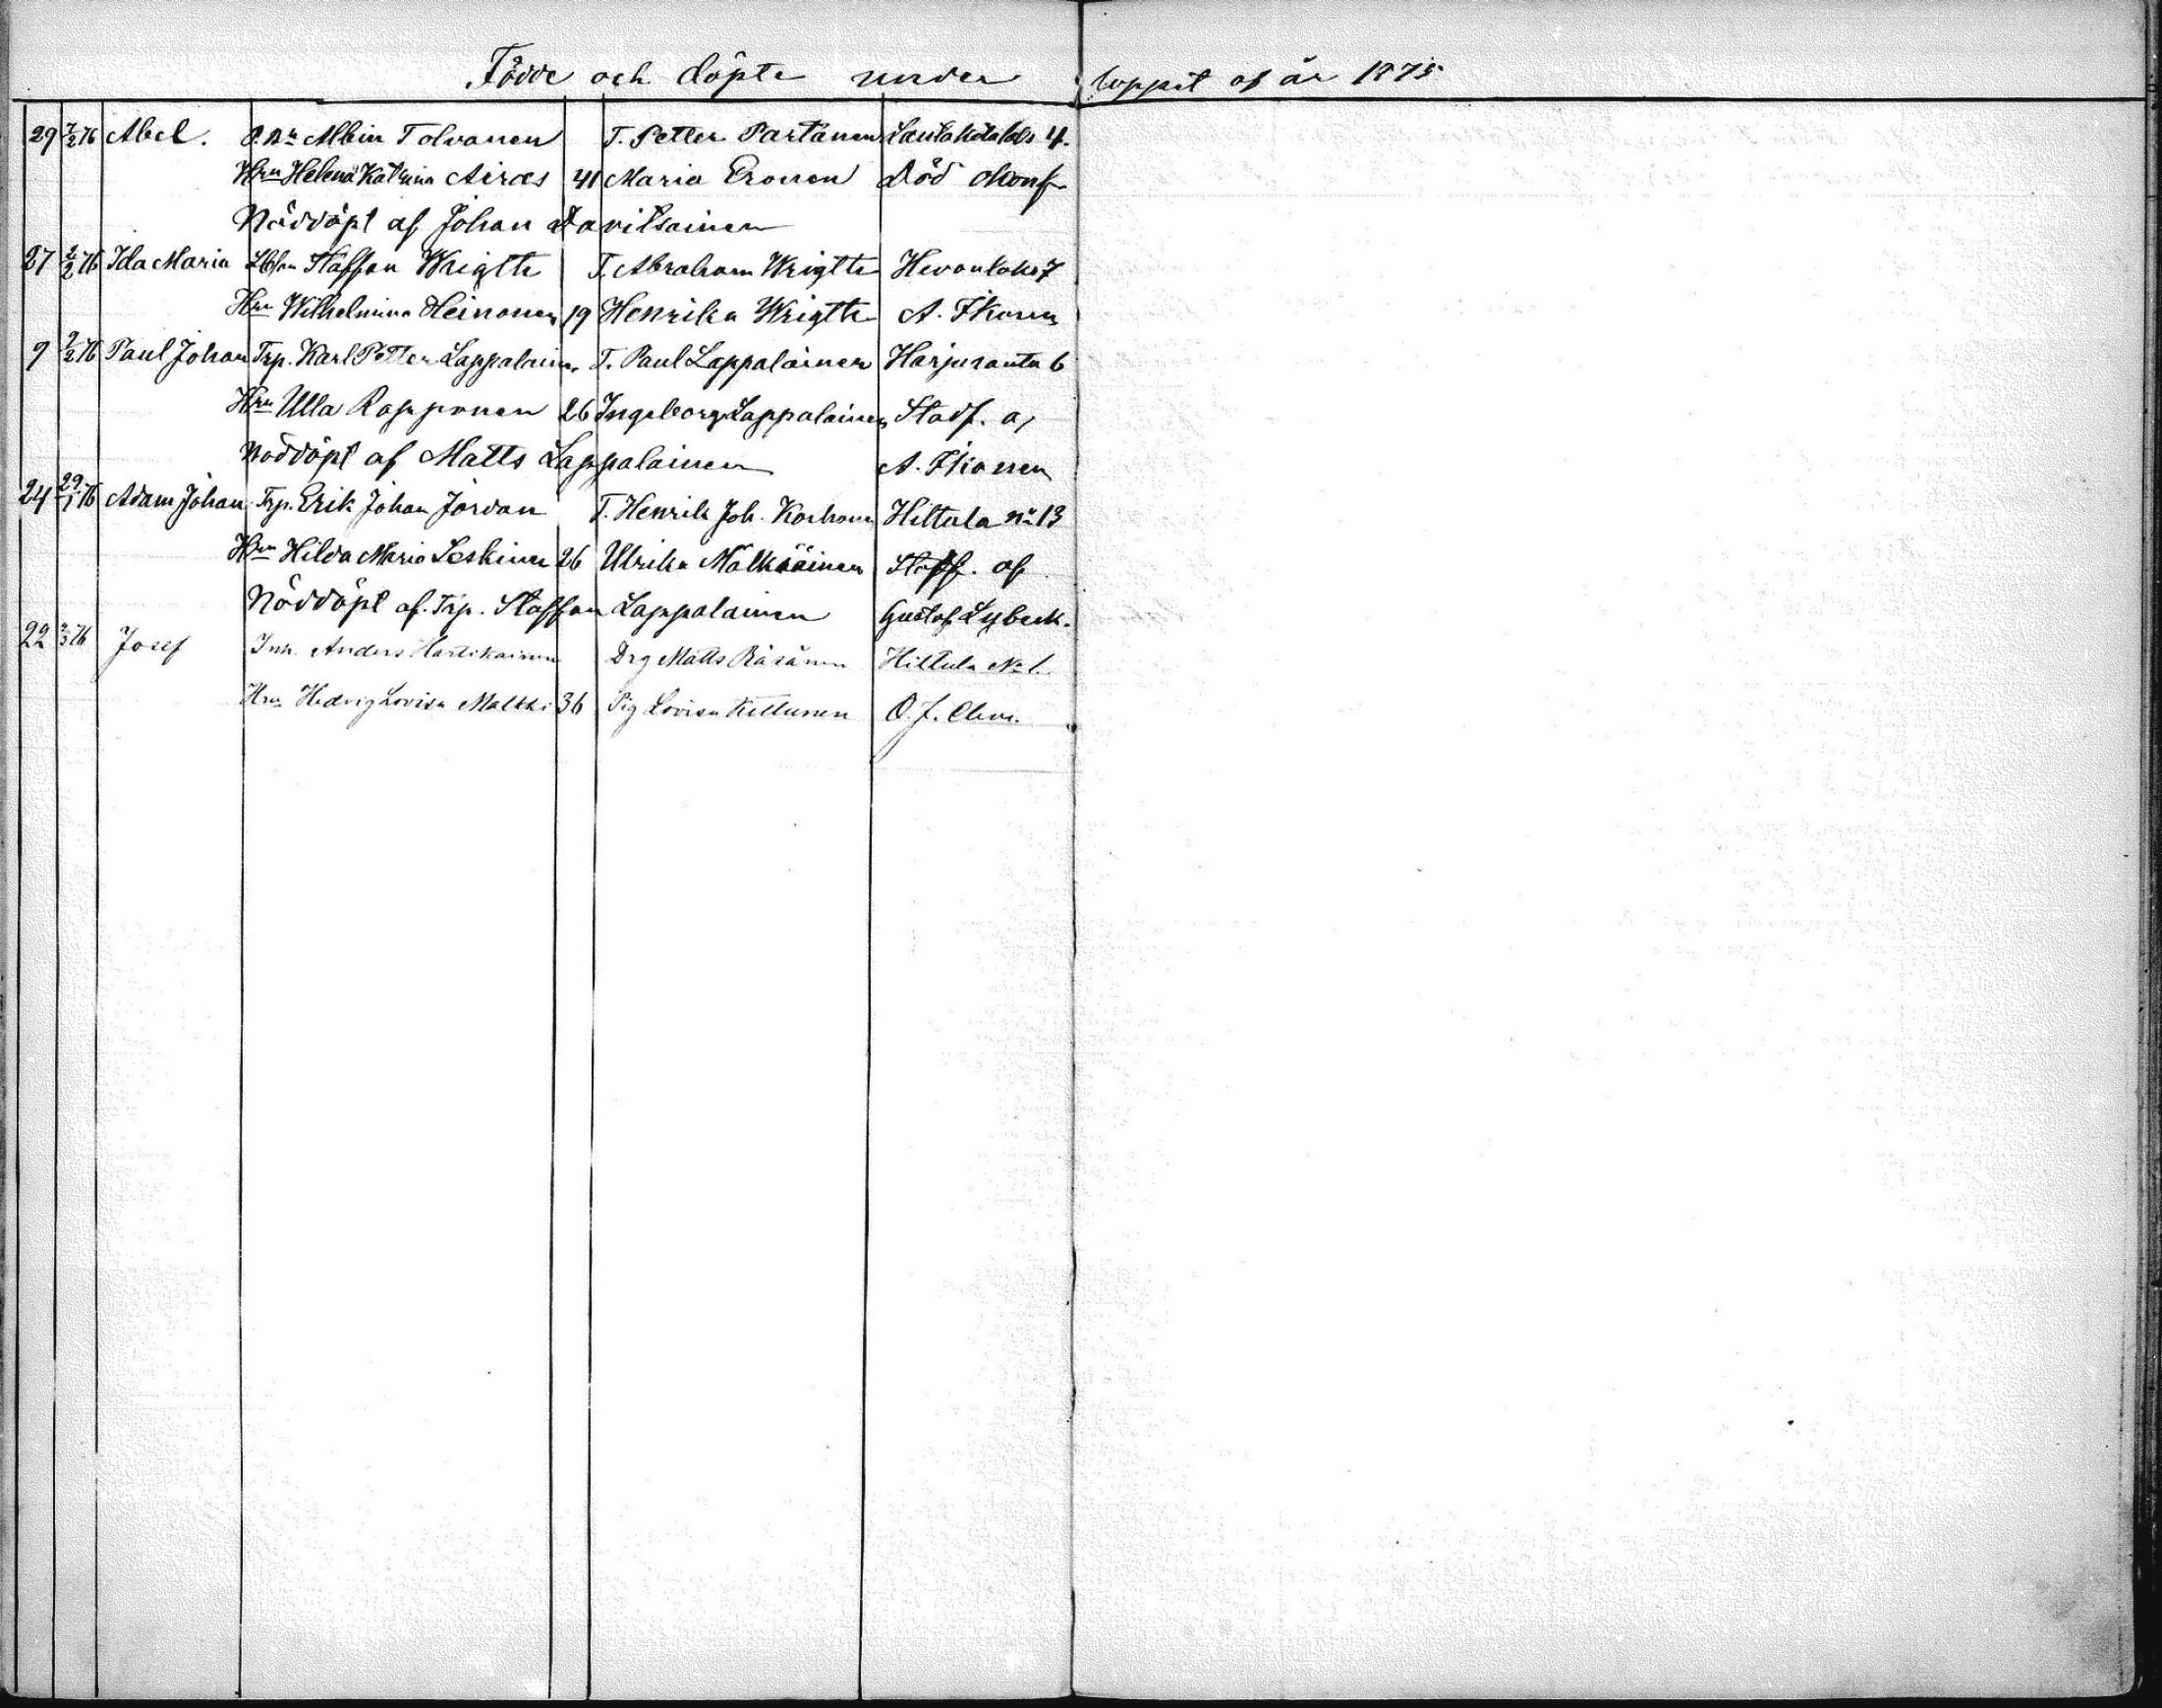 Födde och döpte under loppet af år 1875
29 7/2 76 Abel. Albin Tolvanen T. Petter Partanen 4.
Hru Helena Katrina Airas 41 Maria Eronen Död
Nöddöpt af Johan Davitsainen
27 2/2 76 Ida Maria Staffan Wrigth T. Abraham Wrigth 7
Hru Wilhelmina Heinonen 19 Henrika Wrigth A. Ikonen
9 2/2 76 Paul Johan Trp. Karl Petter Lappalain. T. Paul Lappalainen Harjuranta 6
Hru Ulla Ropponen 26 Ingeborg Lappalainen Stadf. af
Nöddöpt af Matts Lappalainen A. Ikonen
24 29/1 76 Adam Johan Trp. Erik Johan Jordan T. Henrik Joh. Korhonen Hiltula No 13
Hru Hilda Maria Leskinen 26 Ulrika Mälkiäinen Staff. af
Nöddöpt af. Trp. Staffan Lappalainen Gustaf Lybeck.
22 2/3 76 Josef Inh. Anders Hartikainen Drg Matts Räsänen Hiltula No 1.
Hru Hedvig Lovisa Malkki 36 Pig Lovisa Kettunen O. J. Cleve.